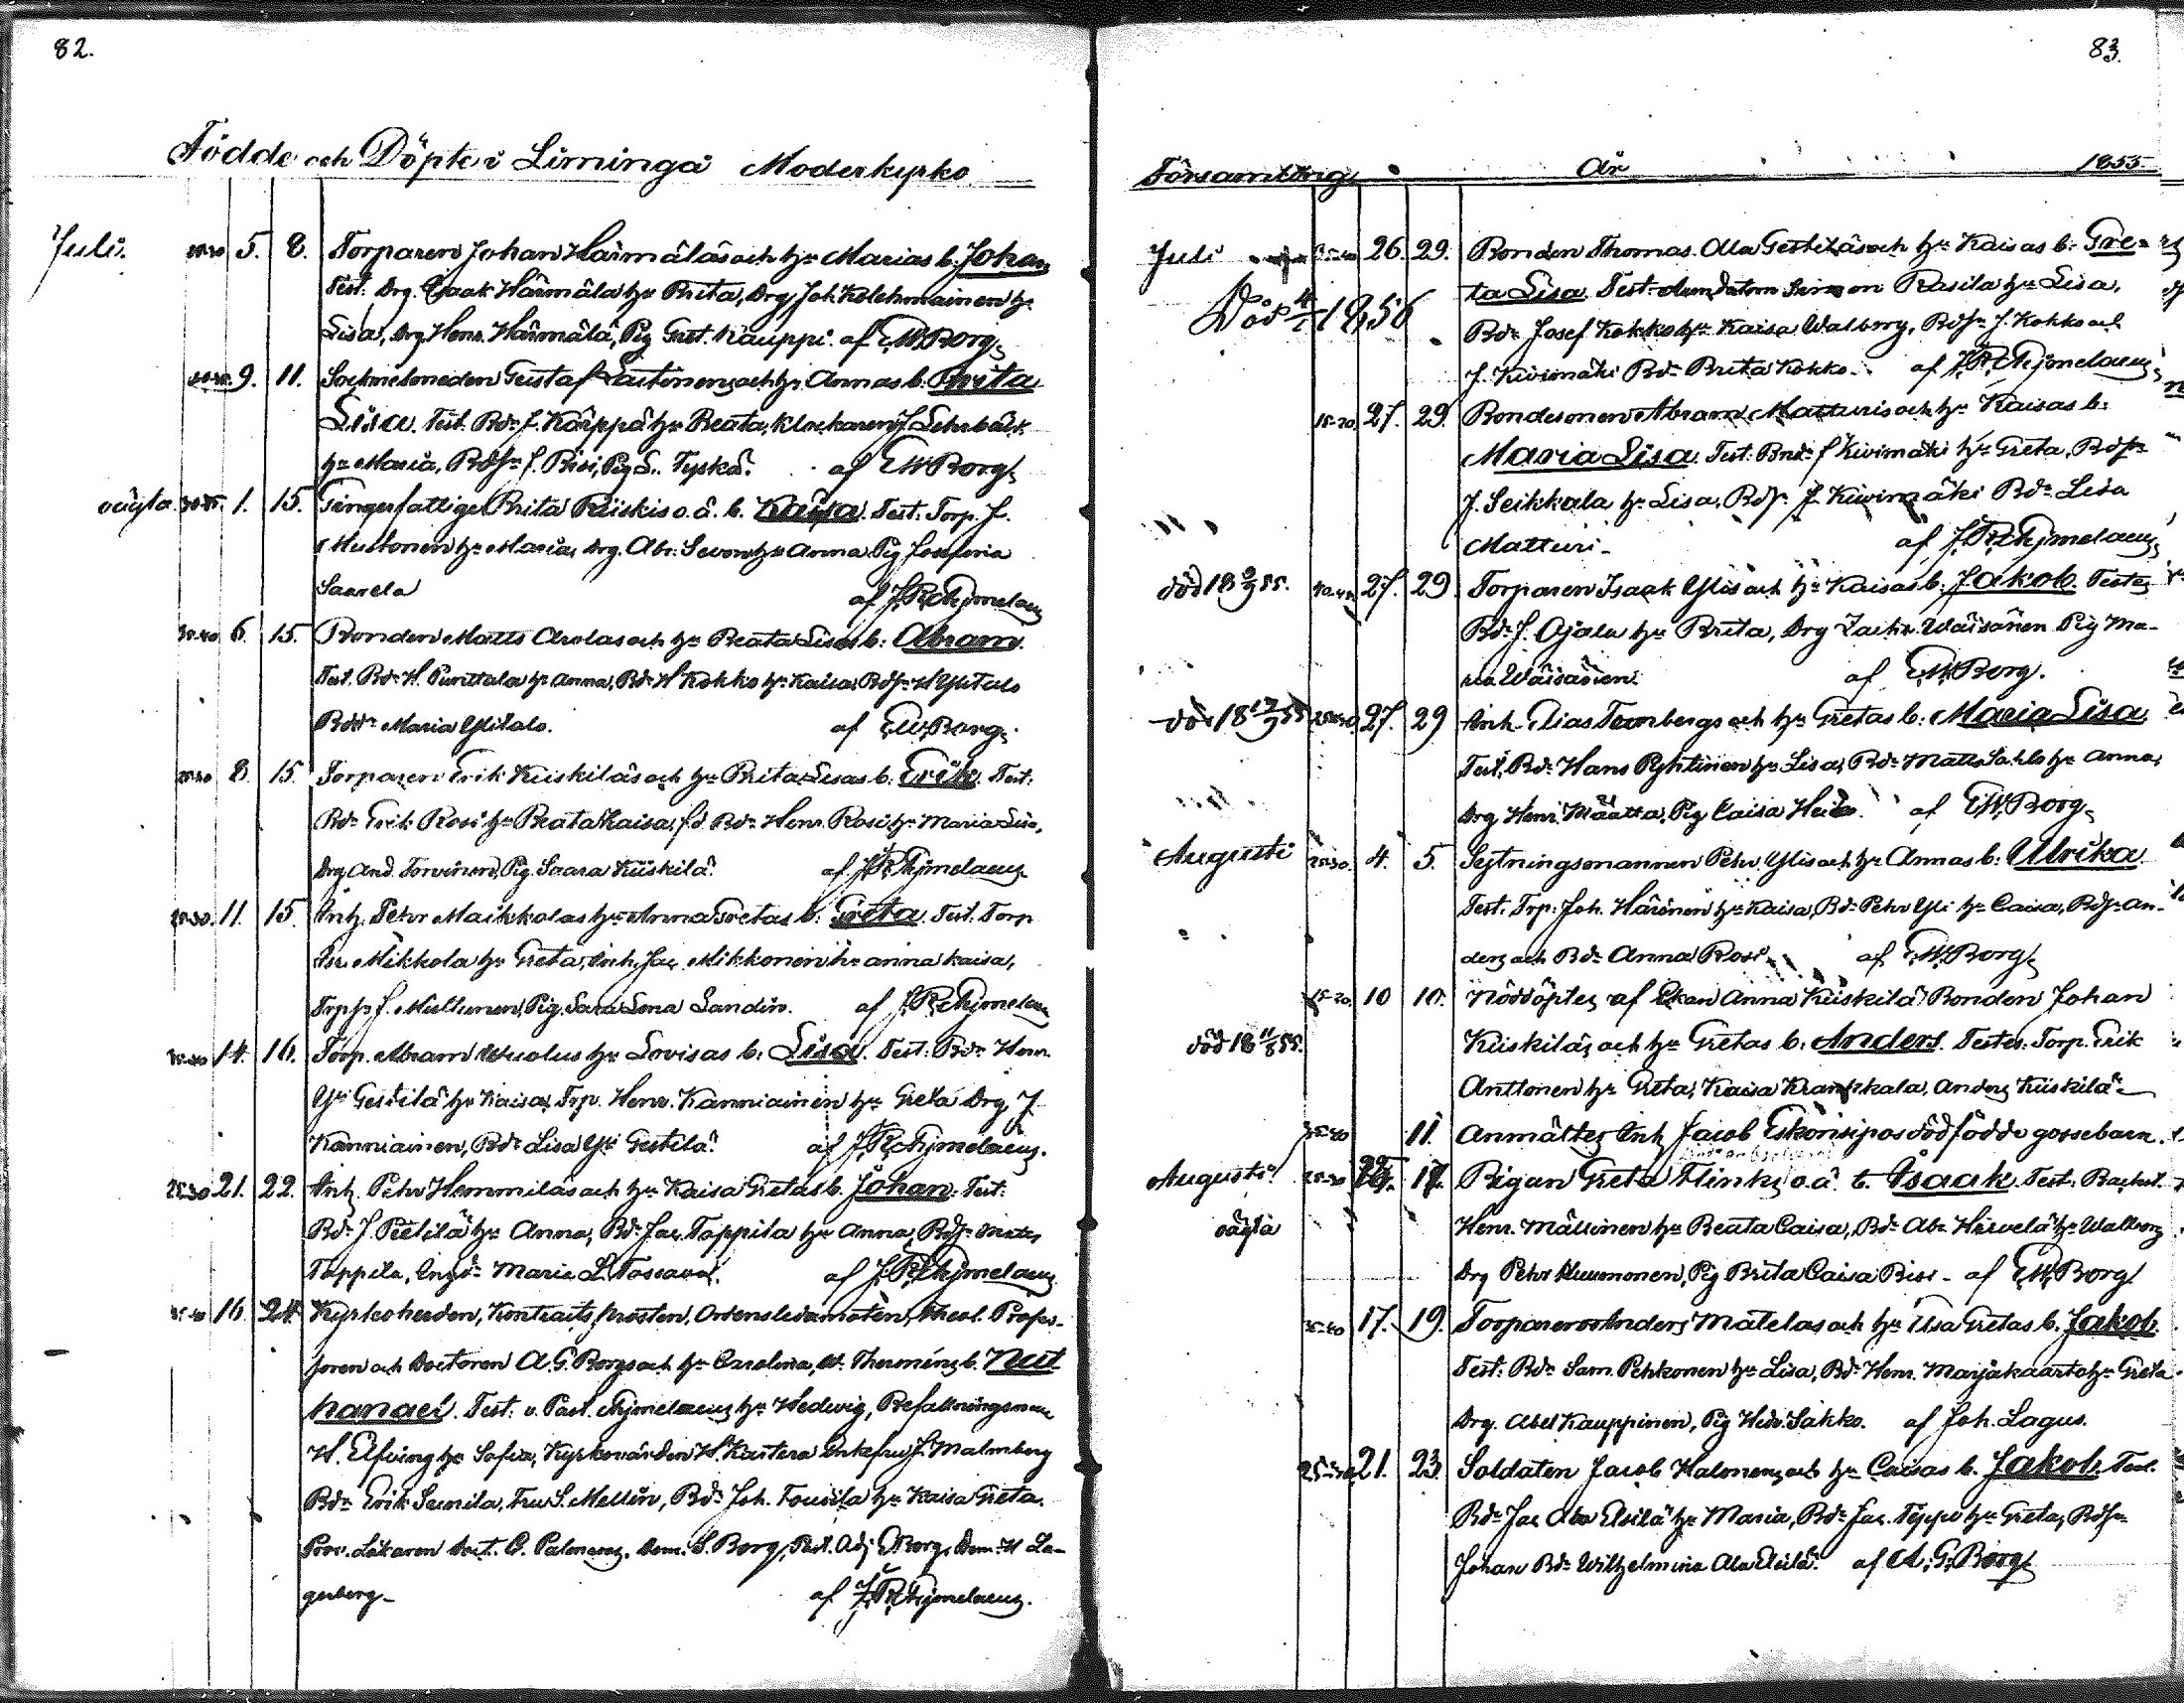 82.
Födde och Döpte i Limingå Moderkyrko
Juli. 5. 8. Torparen Johan Härmäläs och h:s Marias b. Johan
Test. Drg. Isaak Härmälä h:s Brita, Drg Joh. Kolehmainen h:s
Lisa, Drg Henr. Härmälä, Pig Gret. Kauppi. af E.W.Borg.
9. 11. Sockensmeden Gustaf Lastinens och h:s Annas b. Brita
Lisa. Test. Bd: J. Karppä h:s Beata, Klockaren J. Lehrbäck
h:s Maria, Bdsn J. Risi, Pig L. Tyskä. af E.W.Borg.
oägta 30-35. 1. 15. Tingerfattige Brita Kiiskis o.ä. b. Kaisa. Test. Torp. J.
Mustonen h:s Maria, Drg. Abr. Sevon h:s Anna, Pig Josefina
Saarela af J.R.Chymelaeus
30-40. 6. 15. Bonden Matts Anolas och h:s Beata Lisas b. Abram.
Test. Bd: H. Punttala h:s Anna, Bd: H Kokko h:s Kaisa, Bdsn H Ylitalo
Bdd: Maria Ylitalo. af E.W.Borg.
8. 15. Torparen Erik Kiiskiläs och h:s Brita Lisas b. Erik. Test.
Bd: Erik Rosi h:s Beata Kaisa, fd. Bd: Henr. Rosi h:s Maria Lisa,
Drg And. Torvinen, Pig. Saara Kiiskilä. af J.R.Chymelaeus.
25-30. 11. 15. Inh. Pehr Maikkolas h:s Anna Gretas b. Greta. Test. Torp
Mikkola h:s Greta, Inh. Jac. Mikkonen h:s anna Kaisa,
J. Multunen, Pig. Sara Lena Sandin. af J.R.Chymelaeus
14. 16. Torp. Abram h:s Lovisas b. Lisa. Test. Bd: Henr.
Yli Gestilä h:s Kaisa, Trp. Henr. Kanniainen h:s Greta Drg J.
Kanniainen, Bd: Lisa Yli Gestilä. af J.R.Chymelaeus.
25-30 21. 22. Inh. Pehr Hemmiläs och h:s Kaisa Gretas b. Johan. Test.
Bd: J. Pietilä h:s Anna, Bd: Jac. Tappila h:s Anna, Bdsn Matts
Tappila, Maria L. Tossava. af J.R.Chymelaeus
16. 24. Kyrkoherden, Kontraits prosten, Ordensledamoten, Theol. Profes-
soren och Doctoren A.G. Borgs och h:s Carolina, Thermins b. Nat
hanael. Test. v. Past. Chymelaeus h:s Hedwig, Befallningsman
H. Elfving h:s Sofia, Kyrkovärden H. Kastera Enkefru J. Malmberg
Bd: Erik Sumila, Fru S. Mellin, Bd: Joh. Tousila h:s Kaisa Greta.
Prov. Läkaren Doct. C. Dem. S. Borg, Past. Adj E Borg, Dem. H La-
gerborg. af J.R.Chymelaeus.
83.
Församling År 1855.
Juli 26. 29. Bonden Thomas Ala Gestiläs och h:s Kaisas b. Gre-
Död 1856 ta Lisa. Test. Simon Rasila h:s Lisa,
Bd: Josef Kokko h:s Kaisa Walborg, Bdsn J. Kokko och
J. Kivimäki Bd: Brita Kokko. af J.R.Chymelaeus
15-20. 27. 29. Bondesonen Abram Matturis och h:s Kaisas b.
Maria Lisa. Test. Bd: J Kivimäki h:s Greta, Bdsn
J. Seikkala h:s Lisa, Bdsn J. Kivimäki Bd: Lisa
Matturi. af J.R.Chymelaeus
död 18 9/9 55. 27. 29 Torparen Isaak Ylis och h:s Kaisas b. Jakob. Testes
Bd: J. Ojala h:s Brita, Drg Zachr. Wäisänen Pig Ma-
ria Wäisänen. af E.W.Borg.
död 18 17/9 55 27. 29 Inh. Elias Tornbergs och h:s Gretas b. Maria Lisa
Test. Bd: Hans Pyhtinen h:s Lisa, Bd: Matts Sahlo h:s Anna,
Drg Henr. Määtta, Pig Caisa af E.W.Borg.
Augusti 25-30. 4. 5. Sytningsmannen Pehr Ylis och h:s Annas b. Ulrika
Test. Trp. Joh. Härönen h:s Kaisa, Bd: Pehr Yli h:s Caisa, Bdsn An-
ders och Bd: Anna Rosi. af E.W.Borg.
15-20. 10 10. Nöddöptes af Ekan Anna Kiiskilä Bonden Johan
död 18 11/8 55. Kiiskiläs och h:s Gretas b. Anders. Testes. Torp. Erik
Anttonen h:s Greta, Kaisa Anders Kiiskilä
11. Anmältes Inh. Jacob Eskörisipos dödfödde gossebarn.
Augusti 25-30 17. Pigan Greta Flinks o.ä. b. Isaak. Test. Bachst.
oägta Henr. Mällinen h:s Beata Caisa, Bd: Abr. Hirvelä h:s Walborg
Drg Pehr Pig Brita Caisa Risi. af E.W.Borg
35-40 17. 19. Torparen Anders Matelas och h:s Gretas b. Jakob.
Test. Bd: Sam. Pehkonen h:s Lisa, Bd: Henr. Marjakaarto h:s Greta.
Drg. Abel Kauppinen, Pig Hedv. Sakko. af Joh. Lagus.
25-30 21. 23. Soldaten Jacob Halonens och h:s Caisas b. Jakob. Test.
Bd: Jac Ala Elsilä h:s Maria, Bd: Jac. Teppo h:s Greta, Bdsn
Johan Bd: Wilhelmina Ala Elsilä. af A.G.Borg